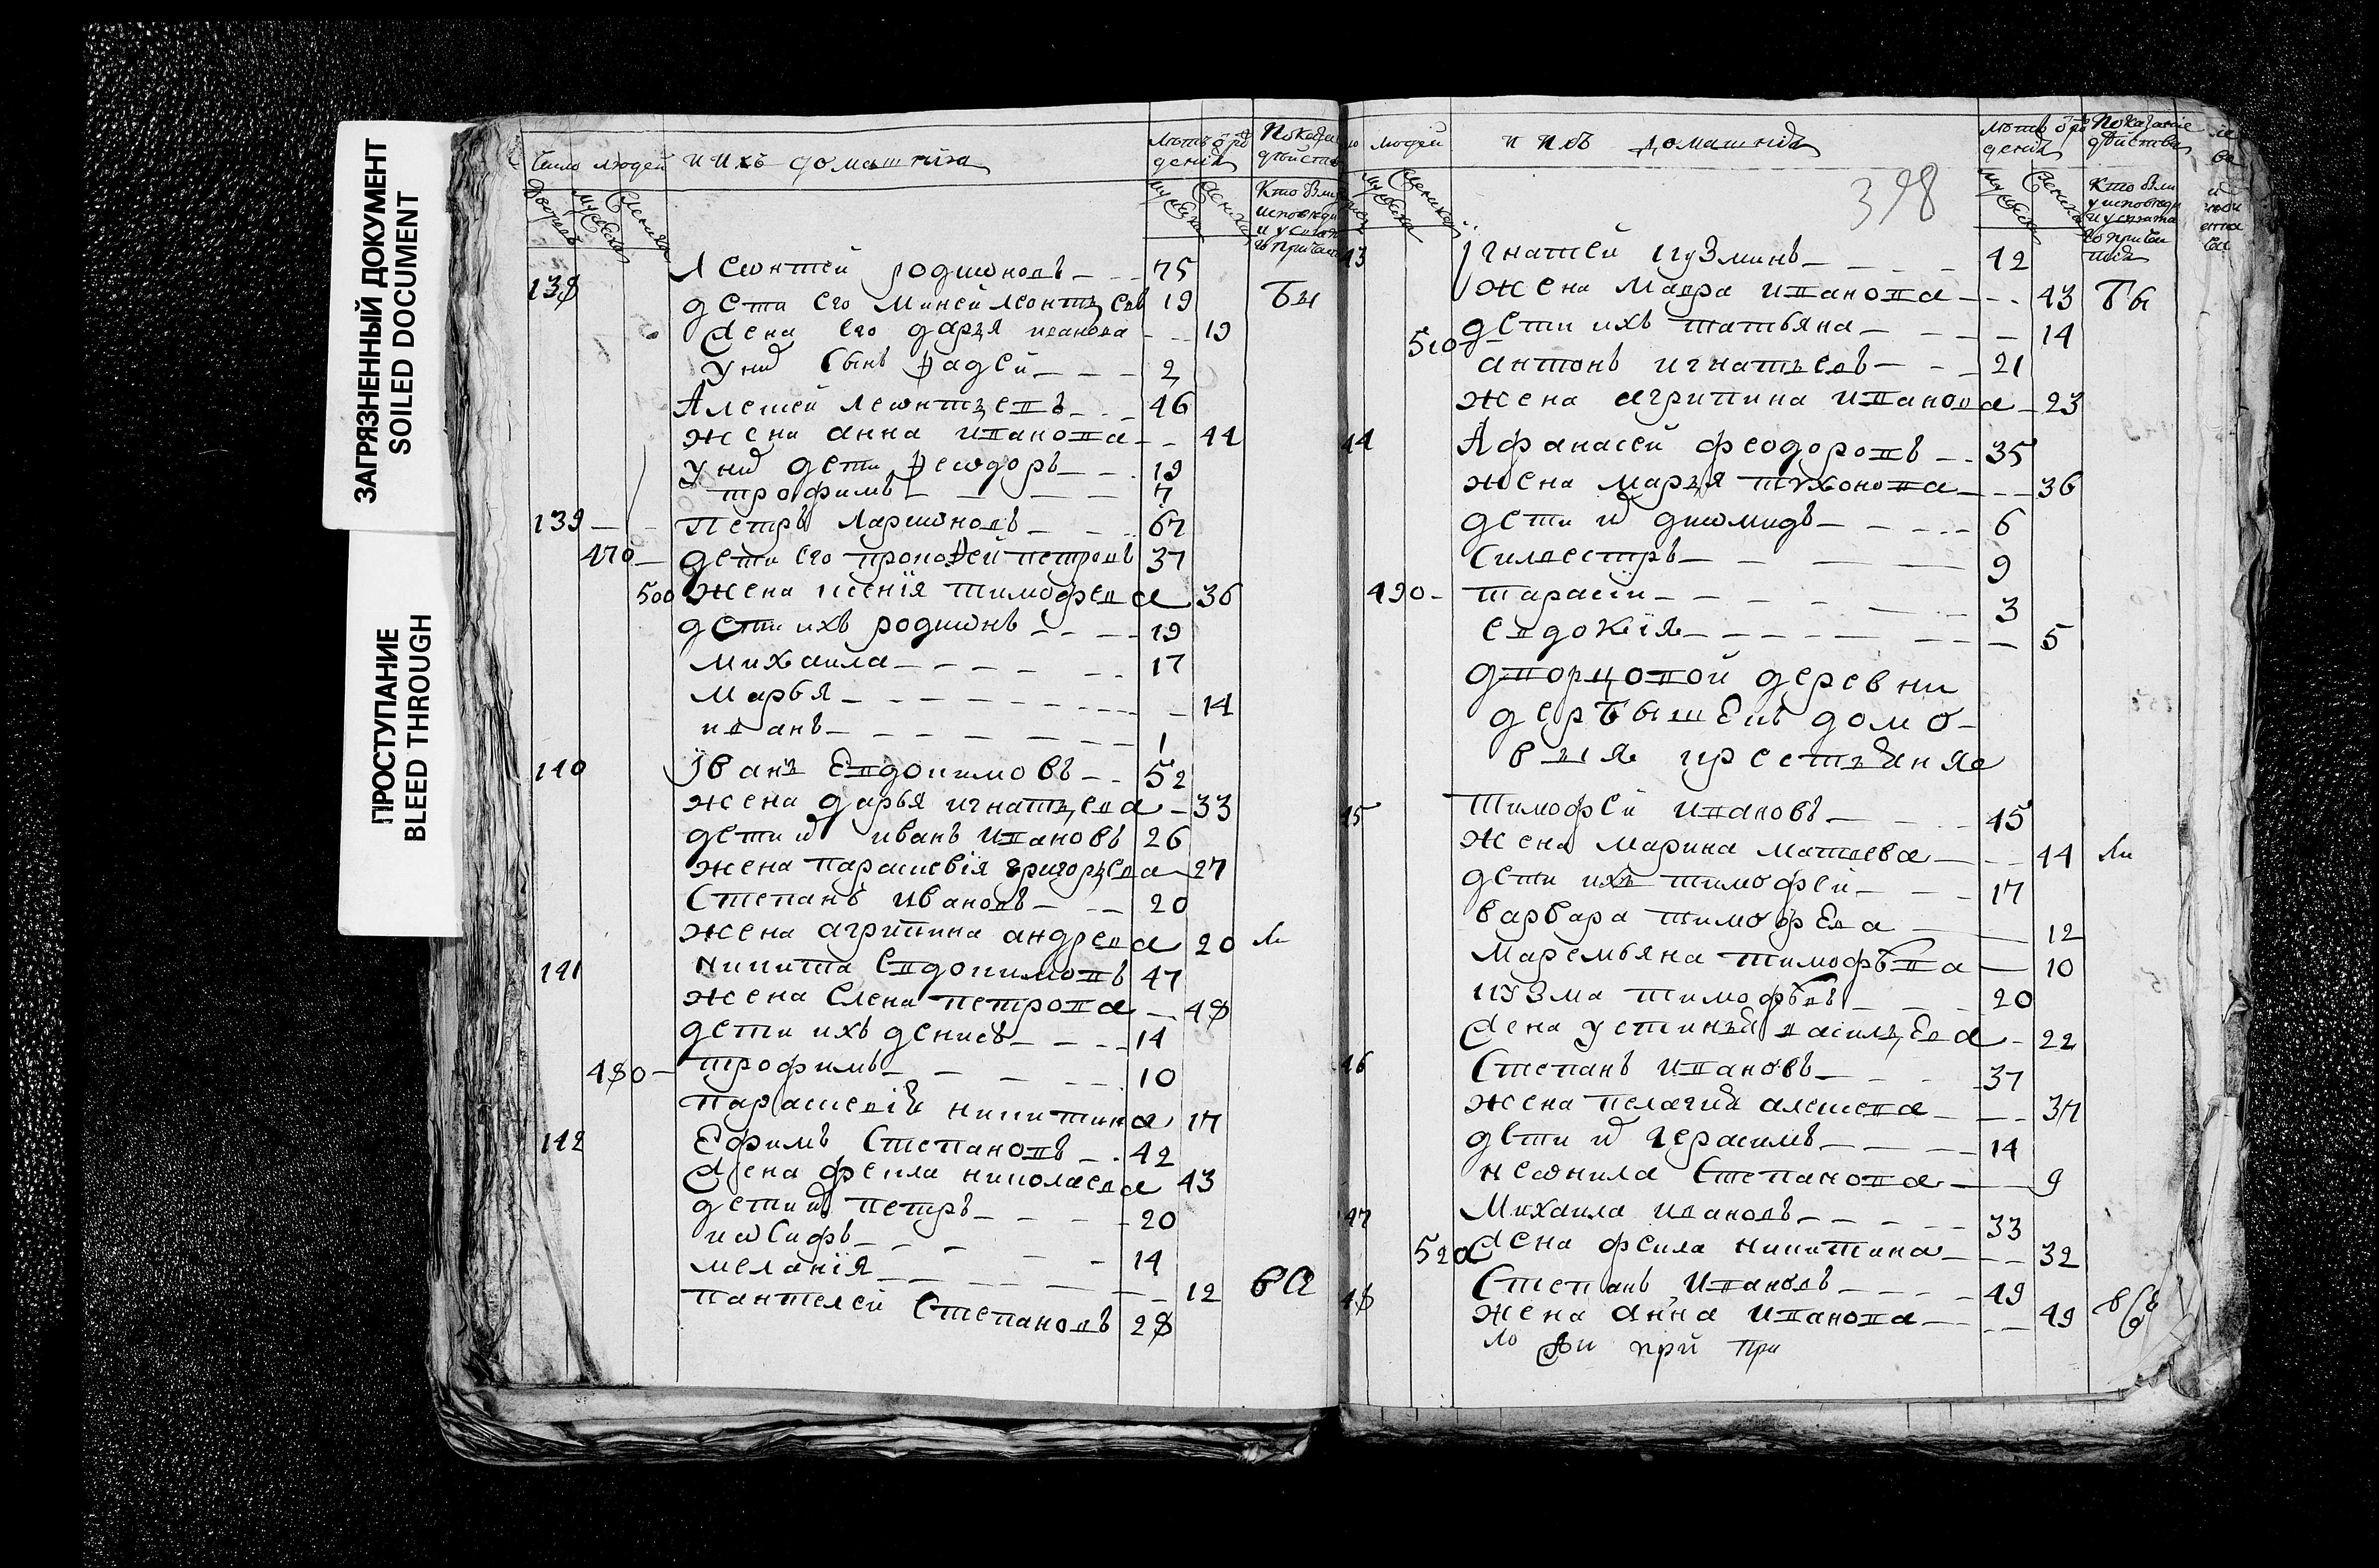 ЗАГРЯЗНЕННЫЙ ДОКУМЕНТ
SOILED DOCUMENT
ПРОСТУПАНИЕ
BLEED THROUGH
Число людей и ихъ домашнiхъ
Леонтей родионовъ 75
138 дети его Миней леонтьевъ 19
Жена его дарья иванова 19
У них сынъ Фадей 2
Алексей леонтьевъ 46
жена анна иванова 44
У них дети Феодоръ 19
трофимъ 7
139 Петръ Ларионовъ 67
470 дети его прокофей петровъ 37
500 жена ксенiя тимофеева 36
дети ихъ родионъ 19
михаила 17
марья 14
иванъ 1
140 Iванъ Евдокимовъ 52
жена дарья игнатьева 33
дети их иванъ ивановъ 26
жена параскевiя григорьева 27
Степанъ ивановъ 20
жена агрипина андреева 20
141 никита Евдокимовъ 47
жена Елена петрова 48
дети ихъ денисъ 14
480 трофимъ 10
параскевiя никитина 17
142 Ефимъ Степановъ 42
жена фекла николаева 43
дети их петръ 20
иосифъ 14
меланiя 12
пантелей Степановъ 28
людей и ихъ домашнiхъ
398
43 Iгнатей кузминъ 42
жена Мавра иванова 43
510 дети ихъ татьяна 14
антонъ игнатьевъ 21
жена агрипина иванова 23
44 Афанасей феодоровъ 35
жена марья тихонова 36
дети их диомидъ 6
Силвестръ 9
490 тарасiи 3
евдокiя 5
дворцовой деревни
дербышекъ домо-
выя крестьяня
45 тимофей ивановъ 45
жена марина матвеева 44
дети ихъ тимофей 17
варвара тимофеева 12
Маремьяна тимофѣва 10
кузма тимофѣвъ 20
жена устинья василъева 22
46 Степанъ ивановъ 37
жена пелагия алексева 37
дети их герасимъ 14
неонила Степанова 9
47 Михаила ивановъ 33
520 жена фекла никитина 32
48 Степанъ ивановъ 49
жена анна иванова 49